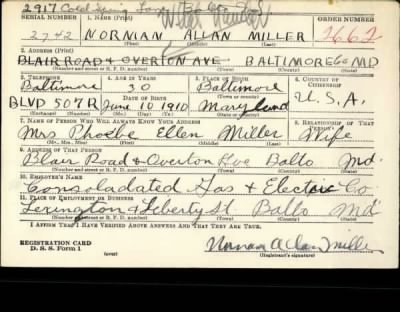 2917 Cold Spring Lane Balto
SERIAL NUMBER 1. NAME (Print) ORDER NUMBER
2742 NORMAN ALLAN MILLER 2662
(First) (Middle) (Last)
2. ADDRESS (Print)
BLAIR ROAD & OVERTON AVE BALTIMORE Co MD
(Number and street or R. F. D. number) (Town) (County) (State)
3. TELEPHONE 4. AGE IN YEARS 5. PLACE OF BIRTH 6. COUNTRY OF CITIZENSHIP
Baltimore 30 Baltimore
DATE OF BIRTH (Town or county) U.S.A.
BLVD 507R June 10 1910 Maryland
(Exchange) (Number) (Mo.) (Day) (Yr.) (State or country)
7. NAME OF PERSON WHO WILL ALWAYS KNOW YOUR ADDRESS 8. RELATIONSHIP OF THAT PERSON
Mrs. Phoebe Ellen Miller Wife
(Mr., Mrs., Miss) (First) (Middle) (Last)
9. ADDRESS OF THAT PERSON
Blair Road & Overton Ave Balto Md.
(Number and street or R. F. D. number) (Town) (County) (State)
10. EMPLOYER'S NAME
Consoladated Gas & Electric Co
11. PLACE OF EMPLOYMENT OR BUSINESS
Lexington & Liberty St Balto Md
(Number and street or R. F. D. number) (Town) (County) (State)
I AFFIRM THAT I HAVE VERIFIED ABOVE ANSWERS AND THAT THEY ARE TRUE.
REGISTRATION CARD Norman Allan Miller
D. S. S. Form 1 (over) (Registrant's signature)